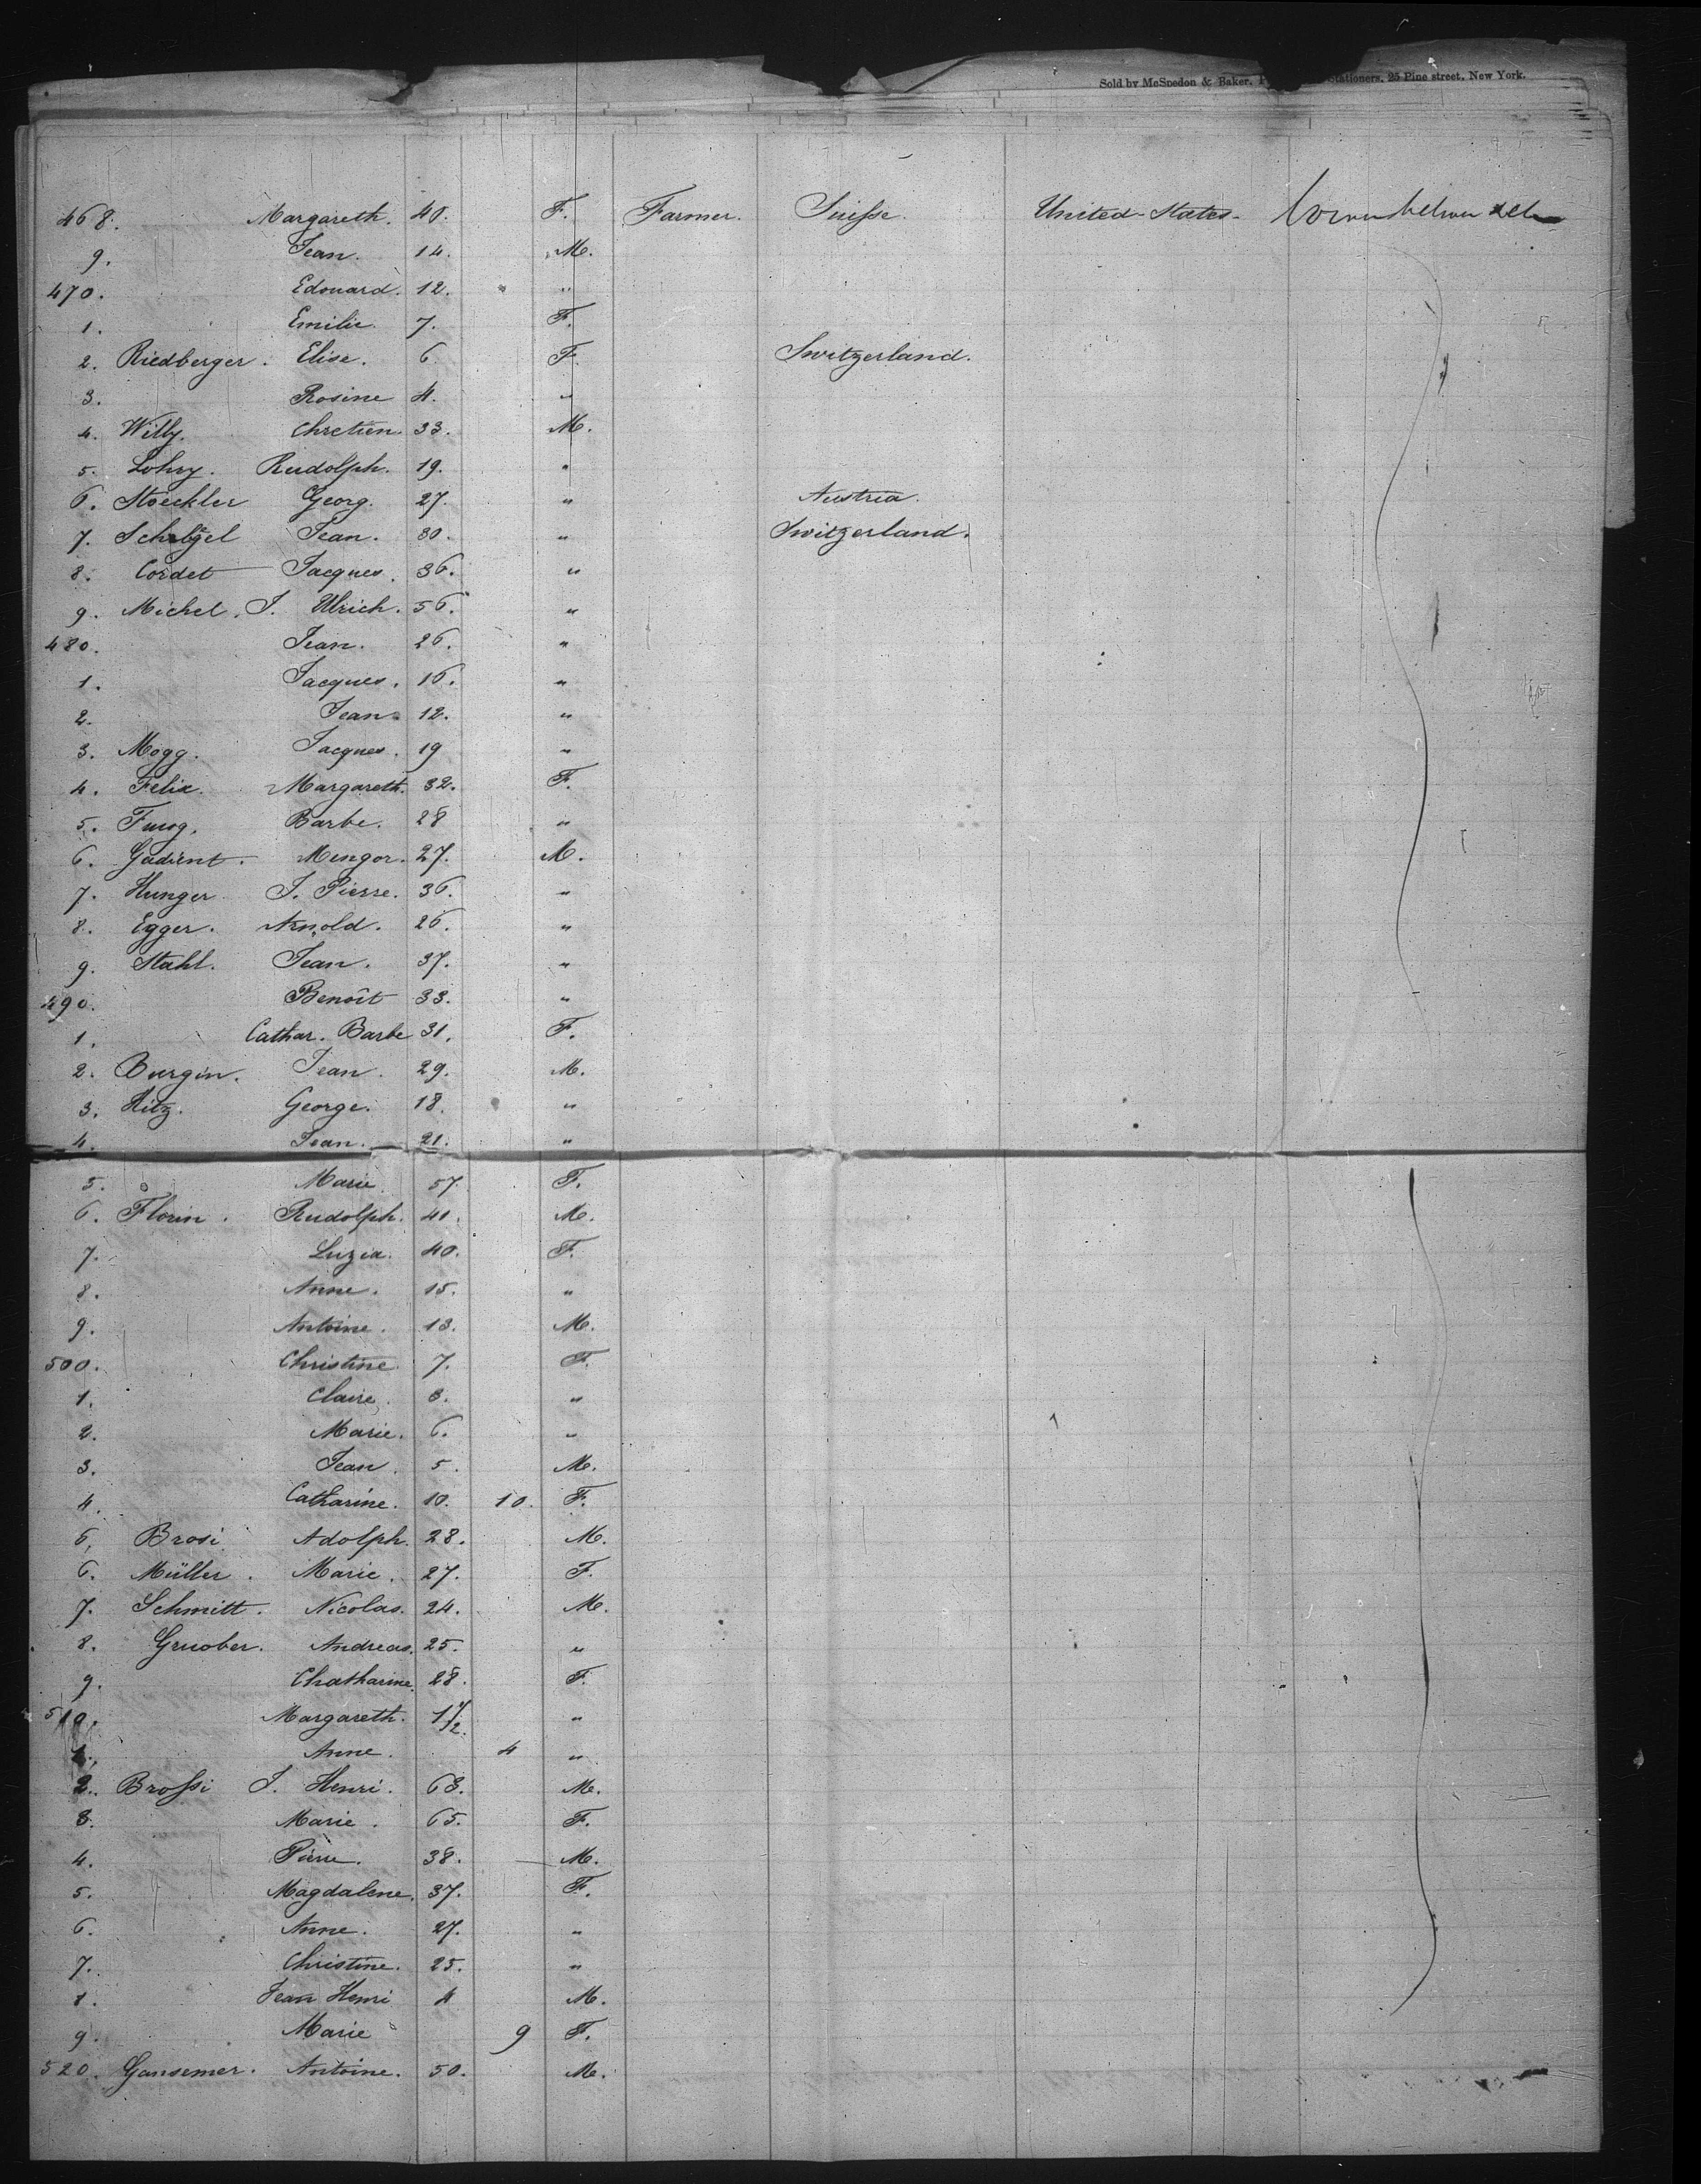 Sold by McSpedon & Baker, Stationers, 25 Pine street, New York.
468. Margareth. 40. F. Farmer. Suisse. United States
9. Jean. 14. M.
470. Edouard. 12. "
1. Emilie. 7. F.
2. Riedberger. Elise. 6. F. Switzerland.
3. Rosine 4. "
4. Willy. Chretien 33. M.
5. Lohry. Rudolph. 19. "
6. Stoeckler Georg. 27. " Austria.
7. Jean. 30. " Switzerland.
8. Cordet Jacques. 36. "
9. Michel. J. Ulrich. 56. "
480. Jean. 26. "
1. Jacques. 16. "
2. Jean. 12. "
3. Mogg. Jacques. 19 "
4. Felix. Margareth. 32. F.
5. Barbe. 28 "
6. Gadient. Mengor. 27. M.
7. Hunger J. Pierre. 36. "
8. Egger. Arnold. 26. "
9. Stahl. Jean. 37. "
490. Benoît 33. "
1. Cathar. Barbe 31. F.
2. Burgin. Jean. 29. M.
3. Hitz. George. 18. "
4. Jean. 21. "
5. Marie 57. F.
6. Florin. Rudolph. 41. M.
7. Luzia. 40. F.
8. Anne. 15. "
9. Antoine. 13. M.
500. Christine 7. F.
1. Claire. 8. "
2. Marie. 6. "
3. Jean. 5. M.
4. Catharine. 10. 10. F.
5. Brosi. Adolph. 28. M.
6. Müller. Marie. 27. F.
7. Schmitt. Nicolas. 24. M.
8. Gruober. Andreas. 25. "
9. Chatharine. 28. F.
510. Margareth. 1 1/2. "
1. Anne. 4 "
2. Brossi J. Henri. 63. M.
3. Marie. 65. F.
4. Pierre. 38. M.
5. Magdalene. 37. F.
6. Anne. 27. "
7. Christine. 25. "
8. Jean Henri 4 M.
9. Marie 9 F.
520. Gansemer. Antoine. 50. M.